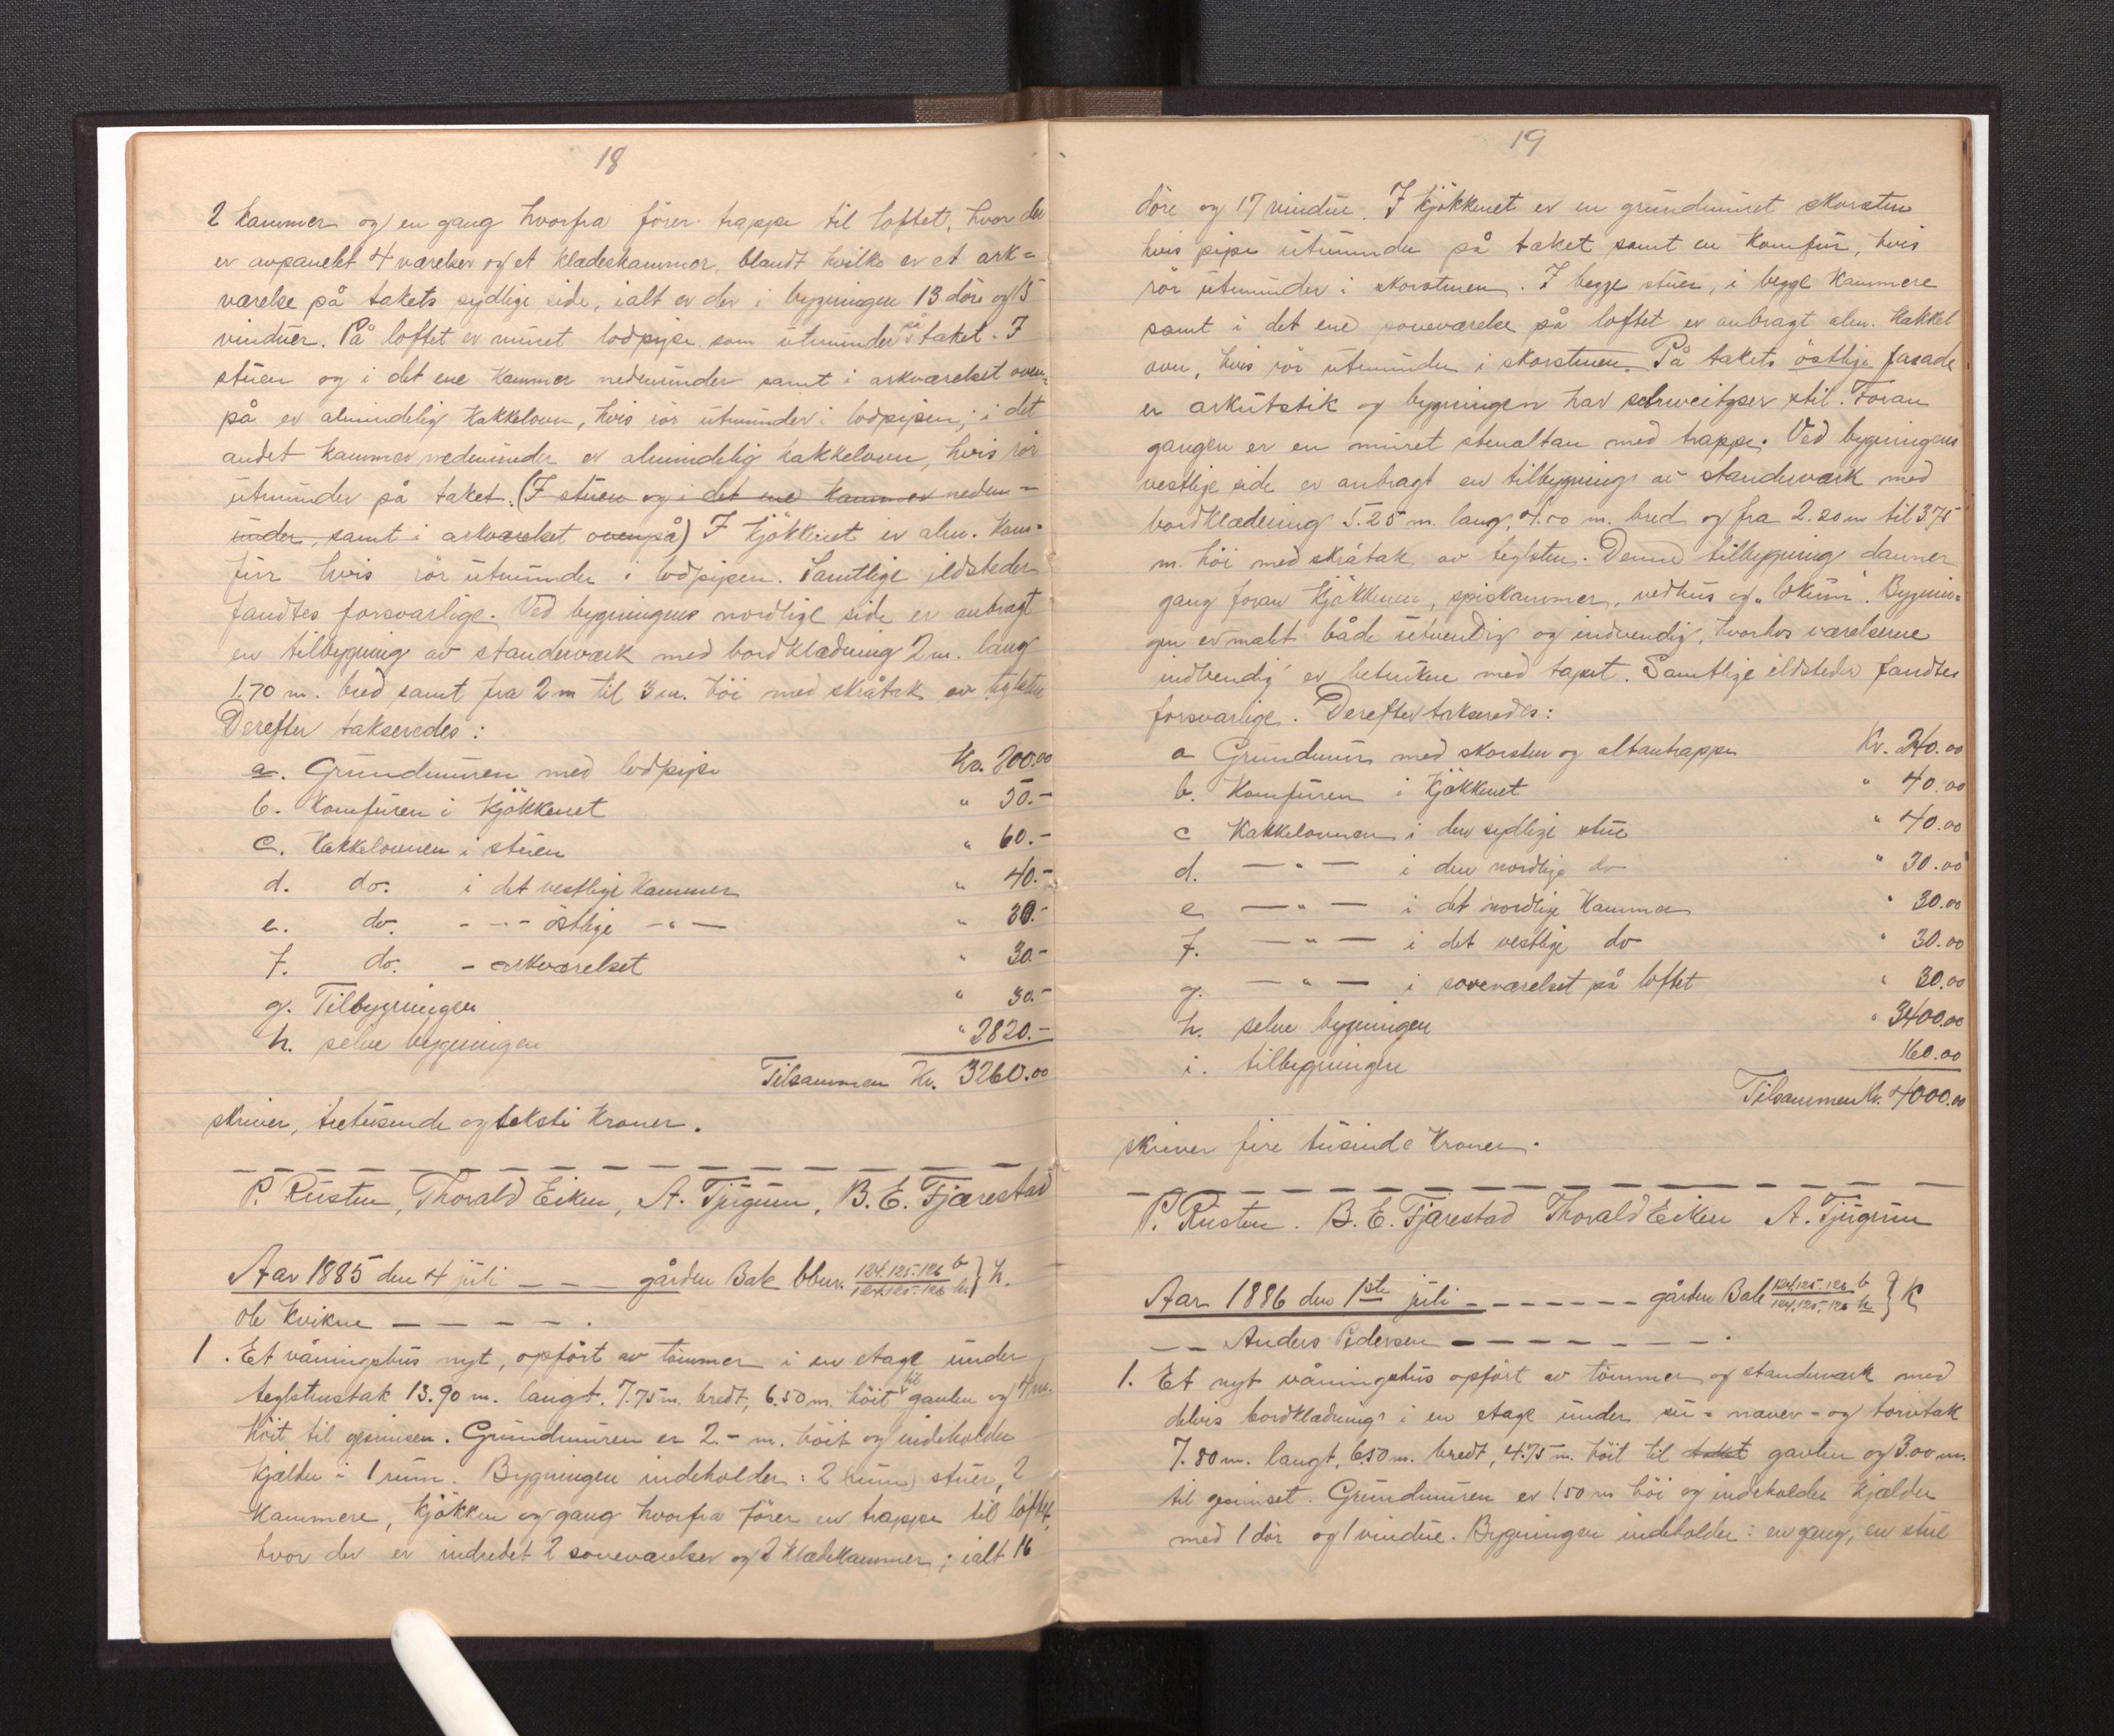 18
2 kammer og en gang hvorfra förer trappe til loftet, hvor der
er avpanelt 4 værelser og et klædeskammer, blandt hvilke er et ark=
værelse på takets sydlige side, ialt er der i bygningen 13 döre og 15
vinduer. På loftet er muret lodpipe som utmunder på taket. I
stuen og i det ene kammer nedenunder samt i arkværelset oven=
på er almindelig kakkelovn, hvis rör utmunder i lodpipen; i det
andet kammer nedenunder er almindelig kakkelovn, hvis rör
utmunder på taket. (I stuen og i det ene kammer neden=
under, samt i arkværelset ovenpå) I kjökkenet er alm. kom=
fur hvis rör utmunder i lodpipen. Samtlige ildsteder
fandtes forsvarlige. Ved bygningens nordlige side er anbragt
en tilbygning av standerværk med bordklædning 2 m. lang
1.70 m. bred samt fra 2 m til 3 m. höi med skråtak av teglsten
Derefter takseredes:
a. Grundmuren med lodpipe Kr. 200.00
b. Komfuren i kjökkenet " 50.-
c. Kakkelovnen i stuen " 60.-
d. do. i det vestlige kammer " 40.-
e. do. - - - östlige - " - " 30.-
f. do. - arkværelset " 30.-
g. Tilbygningen " 30.-
h. selve bygningen " 2820.-
Tilsammen Kr. 3260.00
skriver, tretusende og toksti kroner.
P. Rusten, Thorald Eiken, A. Tjugum, B. E. Fjærestad
Aar 1885 den 4 juli - - - gården Bale lbnr. 124.125.126 b / 124.125.126 h } h.
Ole Kvikne - - - - - .
1. Et våningshus nyt, opfört av tömmer i en etage under
teglstenstak 13.90 m. langt. 7.75 m. bredt, 6.50 m. höit til gavlen og 4 m.
höit til gesimsen. Grundmuren er 2.- m. höit og indeholder
kjælder i 1 rum. Bygningen indeholder: 2 (rum) stuer, 2
kammere, kjökken og gang hvorfra förer en trappe til loftet,
hvor der er indredet 2 soveværelser og 2 klædekammer; ialt 16
19
döre og 17 vindue. I kjökkenet er en grundmuret skorsten
hvis pipe utmunder på taket samt en komfur, hvis
rör utmunder i skorstenen. I begge stuer, i begge kammere
samt i det ene soveværelse på loftet er anbragt alm. kakkel
ovn, hvis rör utmunder i skorstenen. På takets östlige fasade
er arkutstik og bygningen har schweitzer stil. Foran
gangen er en muret stenaltan med trappe. Ved bygningens
vestlige side er anbragt en tilbygning av standerværk med
bordklædning 5.25 m. lang, 4.00 m. bred og fra 2.20 m til 3.75
m. höi med skråtak av teglsten. Denne tilbygning danner
gang foran kjökkenen, spiskammer, vedhus og "lokum". Bygnin=
gen er malt både utvendig og indvendig, hvorhos værelserne
indvendig er betrukne med tapet. Samtlige ildsteder fandtes
forsvarlige. Derefter takseredes:
a Grundmuren med skorsten og altantrappe Kr. 240.00
b. Komfuren i kjökkenet " 40.00
c Kakkelovnen i den sydlige stue " 40.00
d. — " — i den nordlige do " 30.00
e — " — i det nordlige kammer " 30.00
f. — " — i det vestlige do " 30.00
g. — " — i soveværelset på loftet " 30.00
h. selve bygningen " 3400.00
i. tilbygningen 160.00
Tilsammen Kr. 4000.00
skriver fire tusinde kroner.
P. Rusten. B. E. Fjærestad Thorald Eiken A. Tjugum
Aar 1886 den 1ste juli - - - - - - - gården Bale 124.125.126 b / 124.125.126 h } k
- - Anders Pedersen - - - - - - - .
1. Et nyt våningshus opfört av tömmer og standerværk med
delvis bordklædning i en etage under su- naver- og torvtak
7.80 m. langt, 6.50 m. bredt, 4.75 m. höit til taket gavlen og 3.00 m.
til gesimset. Grundmuren er 1.50 m höi og indeholder kjælder
med 1 dör og 1 vindue. Bygningen indeholder: en gang, en stue